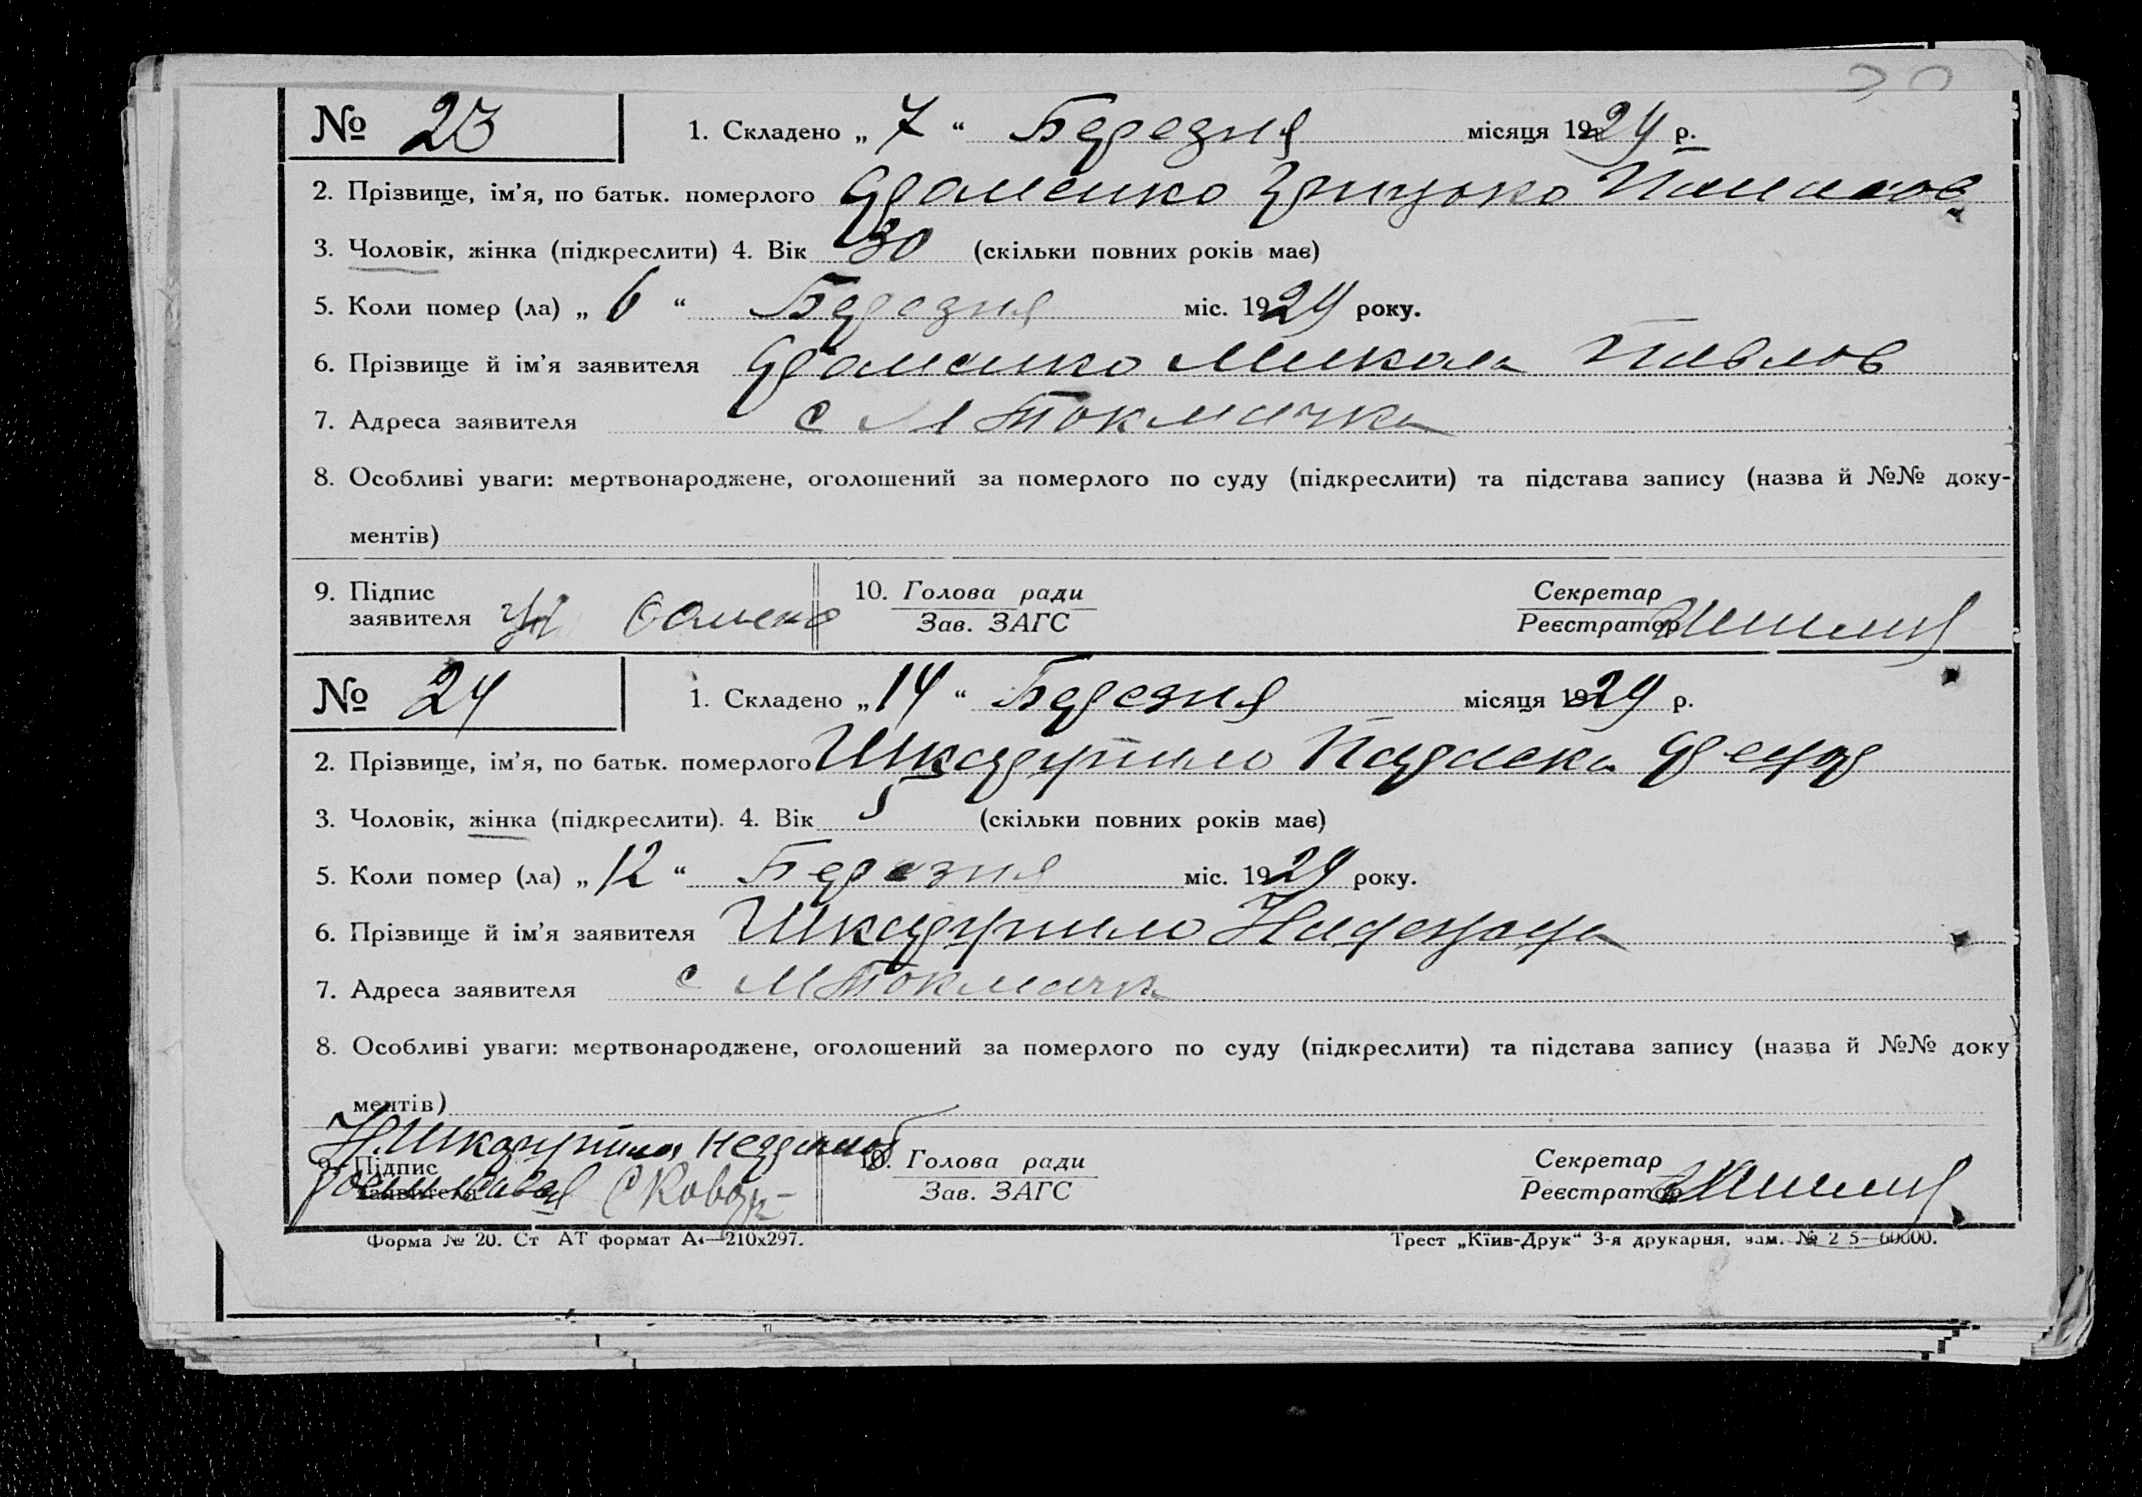 № 23 1. Складено „ 7 “ Березня місяця 1929 р.
2. Прізвище, ім'я, по батьк. померлого
3. Чоловік, жінка (підкреслити) 4. Вік 30 (скільки повних років має)
5. Коли помер (ла) „ 6 “ Березня міс. 1929 року.
6. Прізвище й ім'я заявителя Микола Павлов
7. Адреса заявителя с М Токмачка
8. Особливі уваги: мертвонароджене, оголошений за померлого по суду (підкреслити) та підстава запису (назва й №№ доку-
ментів)
9. Підпис заявителя 10. Голова ради Секретар
Зав. ЗАГС Реєстратор
№ 24 1. Складено „ 14 “ Березня місяця 1929 р.
2. Прізвище, ім'я, по батьк. померлого Шкарупило Параска
3. Чоловік, жінка (підкреслити). 4. Вік 5 (скільки повних років має)
5. Коли помер (ла) „ 12 “ Березня міс. 1929 року.
6. Прізвище й ім'я заявителя Шкарупило
7. Адреса заявителя с М Токмачка
8. Особливі уваги: мертвонароджене, оголошений за померлого по суду (підкреслити) та підстава запису (назва й №№ доку
ментів)
9. Підпис заявителя 10. Голова ради Секретар
Зав. ЗАГС Реєстратор
Форма № 20. Ст АТ формат А4—210х297. Трест „Київ-Друк“ 3-я друкарня, зам. № 2 5—60000.